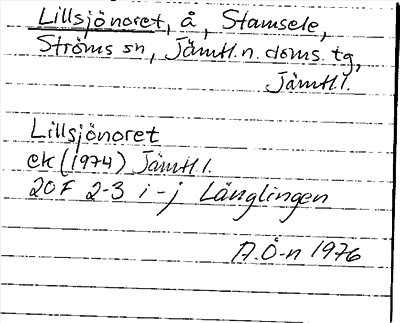 Lillsjönoret, å, Stamsele,
Ströms sn, Jämtl.n.doms.tg,
Jämtl.l.
Lillsjönoret
ek (1974) Jämtl.l.
20F 2-3 i-j Långlingen
A.Ö-n 1976